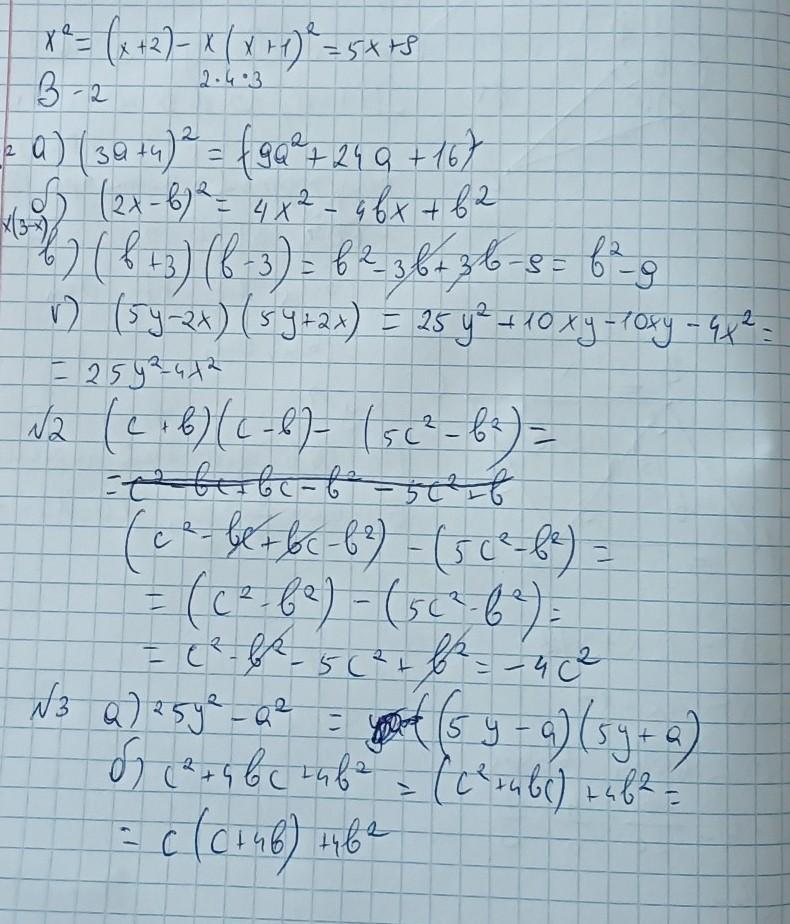 x² = (x+2) - x(x+1)² = 5x+8
В - 2 2·4·3
2 а) (3a+4)² = (9a² + 24a + 16)
б) (2x-b)² = 4x² - 4bx + b²
x(3-x)
в) (b+3)(b-3) = b² - 3b + 3b - 9 = b² - 9
г) (5y-2x)(5y+2x) = 25y² + 10xy - 10xy - 4x² =
= 25y² - 4x²
№2 (c+b)(c-b) - (5c² - b²) =
= c² - bc + bc - b² - 5c² + b
(c² - bc + bc - b²) - (5c² - b²) =
= (c² - b²) - (5c² - b²) =
= c² - b² - 5c² + b² = -4c²
№3 а) 25y² - a² = ((5y - a)(5y + a)
б) c² + 4bc + 4b² = (c² + 4bc) + 4b² =
= c(c+4b) + 4b²